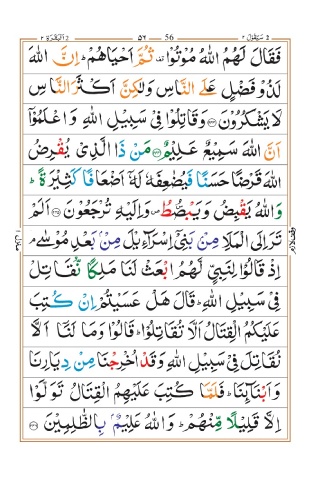 سيقول ٢ ٥٦ 56 البقرة ٢
فَقَالَ لَهُمُ اللّٰهُ مُوۡتُوۡا ثُمَّ اَحۡيَاهُمۡؕ اِنَّ اللّٰهَ
لَذُوۡ فَضۡلٍ عَلَى النَّاسِ وَلٰـكِنَّ اَکۡثَرَ النَّاسِ
لَا يَشۡکُرُوۡنَ‏ ﴿۲۴۳﴾ وَقَاتِلُوۡا فِىۡ سَبِيۡلِ اللّٰهِ وَاعۡلَمُوۡٓا
اَنَّ اللّٰهَ سَمِيۡعٌ عَلِيۡمٌ‏ ﴿۲۴۴﴾ مَنۡ ذَا الَّذِىۡ يُقۡرِضُ
اللّٰهَ قَرۡضًا حَسَنًا فَيُضٰعِفَهٗ لَهٗۤ اَضۡعَافًا کَثِيۡرَةً‌ ؕ
وَاللّٰهُ يَقۡبِضُ وَيَبۡصُۜطُ وَ اِلَيۡهِ تُرۡجَعُوۡنَ‏ ﴿۲۴۵﴾ اَلَمۡ
تَرَ اِلَى الۡمَلَاِ مِنۡۢ بَنِىۡٓ اِسۡرَآءِيۡلَ مِنۡۢ بَعۡدِ مُوۡسٰى‌ۘ
اِذۡ قَالُوۡا لِنَبِىٍّ لَّهُمُ ابۡعَثۡ لَنَا مَلِکًا نُّقَاتِلۡ
فِىۡ سَبِيۡلِ اللّٰهِ‌ؕ قَالَ هَلۡ عَسَيۡتُمۡ اِنۡ کُتِبَ
عَلَيۡکُمُ الۡقِتَالُ اَلَّا تُقَاتِلُوۡا ؕ قَالُوۡا وَمَا لَنَآ اَلَّا
نُقَاتِلَ فِىۡ سَبِيۡلِ اللّٰهِ وَقَدۡ اُخۡرِجۡنَا مِنۡ دِيَارِنَا
وَاَبۡنَآٮِٕنَا ‌ؕ فَلَمَّا کُتِبَ عَلَيۡهِمُ الۡقِتَالُ تَوَلَّوۡا
اِلَّا قَلِيۡلًا مِّنۡهُمۡ‌ؕ وَاللّٰهُ عَلِيۡمٌۢ بِالظّٰلِمِيۡنَ‏ ﴿۲۴۶﴾